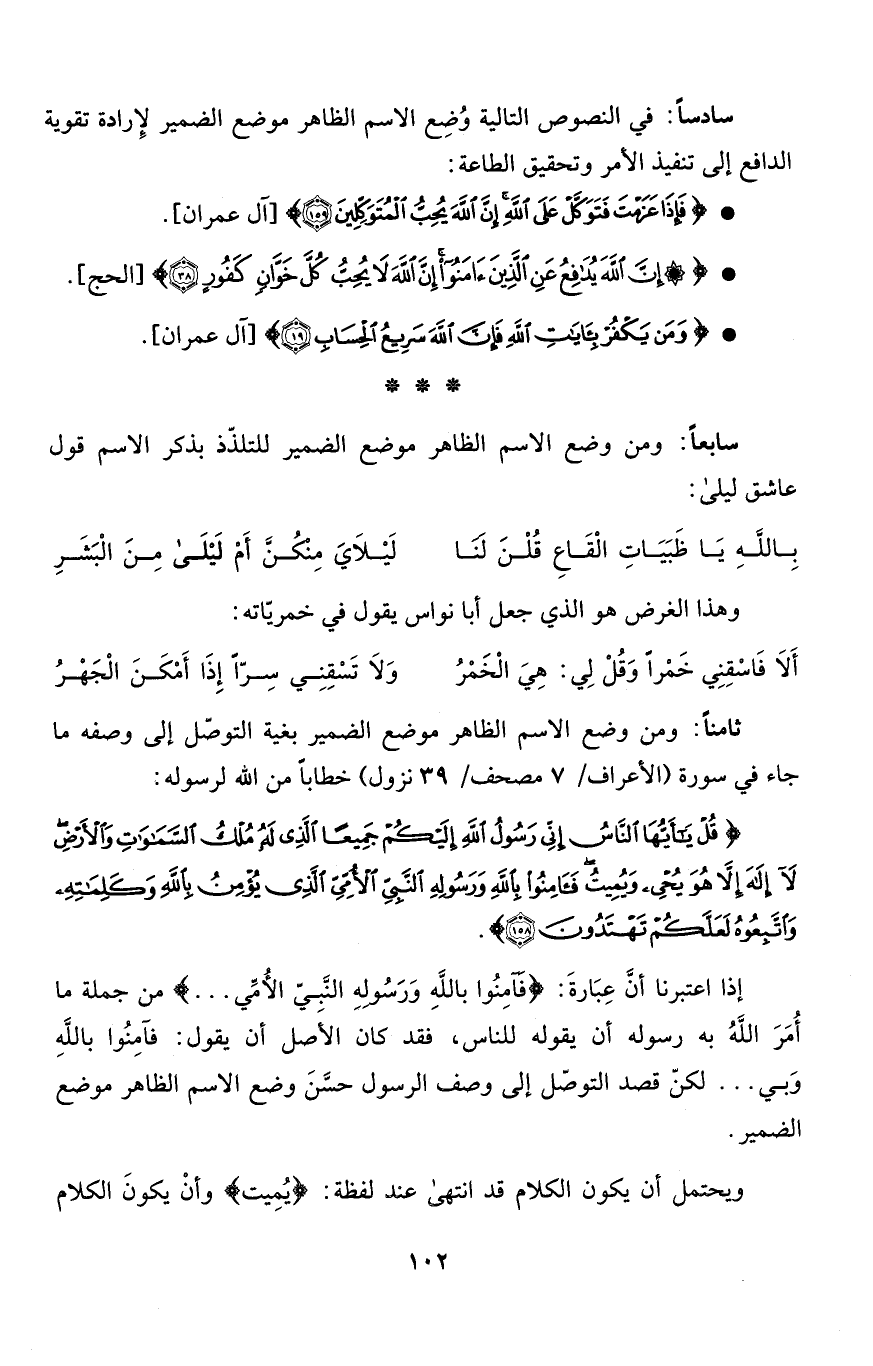 سادساً: في النصوص التالية وُضِع الاسم الظاهر موضع الضمير لإرادة تقوية
الدافع إلى تنفيذ الأمر وتحقيق الطاعة:
● ﴿ فَإِذَا عَزَمْتَ فَتَوَكَّلْ عَلَى ٱللَّهِ ۚ إِنَّ ٱللَّهَ يُحِبُّ ٱلْمُتَوَكِّلِينَ ١٥٩﴾ [آل عمران].
● ﴿ ۞ إِنَّ ٱللَّهَ يُدَٰفِعُ عَنِ ٱلَّذِينَ ءَامَنُوٓا۟ ۗ إِنَّ ٱللَّهَ لَا يُحِبُّ كُلَّ خَوَّانٍ كَفُورٍ ٣٨﴾ [الحج].
● ﴿ وَمَن يَكْفُرْ بِـَٔايَٰتِ ٱللَّهِ فَإِنَّ ٱللَّهَ سَرِيعُ ٱلْحِسَابِ ١٩﴾ [آل عمران].
* * *
سابعاً: ومن وضع الاسم الظاهر موضع الضمير للتلذّذ بذكر الاسم قول
عاشق ليلىٰ:
بِـاللَّـهِ يَـا ظَبَيَـاتِ الْقَـاعِ قُلْـنَ لَنَـا لَيْـلَايَ مِنْكُـنَّ أَمْ لَيْلَـىٰ مِـنَ الْبَشَـرِ
وهذا الغرض هو الذي جعل أبا نواس يقول في خمريّاته:
أَلَا فَاسْقِنِي خَمْراً وَقُلْ لِي: هِيَ الْخَمْرُ وَلَا تَسْقِنِـي سِـرّاً إِذَا أَمْكَـنَ الْجَهْـرُ
ثامناً: ومن وضع الاسم الظاهر موضع الضمير بغية التوصّل إلى وصفه ما
جاء في سورة (الأعراف/ ٧ مصحف/ ٣٩ نزول) خطاباً من الله لرسوله:
﴿ قُلْ يَٰٓأَيُّهَا ٱلنَّاسُ إِنِّى رَسُولُ ٱللَّهِ إِلَيْكُمْ جَمِيعًا ٱلَّذِى لَهُۥ مُلْكُ ٱلسَّمَٰوَٰتِ وَٱلْأَرْضِ ۖ
لَآ إِلَٰهَ إِلَّا هُوَ يُحْىِۦ وَيُمِيتُ ۖ فَـَٔامِنُوا۟ بِٱللَّهِ وَرَسُولِهِ ٱلنَّبِىِّ ٱلْأُمِّىِّ ٱلَّذِى يُؤْمِنُ بِٱللَّهِ وَكَلِمَٰتِهِۦ
وَٱتَّبِعُوهُ لَعَلَّكُمْ تَهْتَدُونَ ١٥٨﴾.
إذا اعتبرنا أنَّ عِبَارةَ: ﴿فَآمِنُوا باللَّهِ وَرَسُولِهِ النَّبِـيّ الأُمِّي...﴾ من جملة ما
أُمَرَ اللَّهُ به رسوله أن يقوله للناس، فقد كان الأصل أن يقول: فآمِنُوا باللَّهِ
وَبـي... لكنّ قصد التوصّل إلى وصف الرسول حسَّنَ وضع الاسم الظاهر موضع
الضمير.
ويحتمل أن يكون الكلام قد انتهىٰ عند لفظة: ﴿يُمِيت﴾ وأنْ يكونَ الكلام
١٠٢